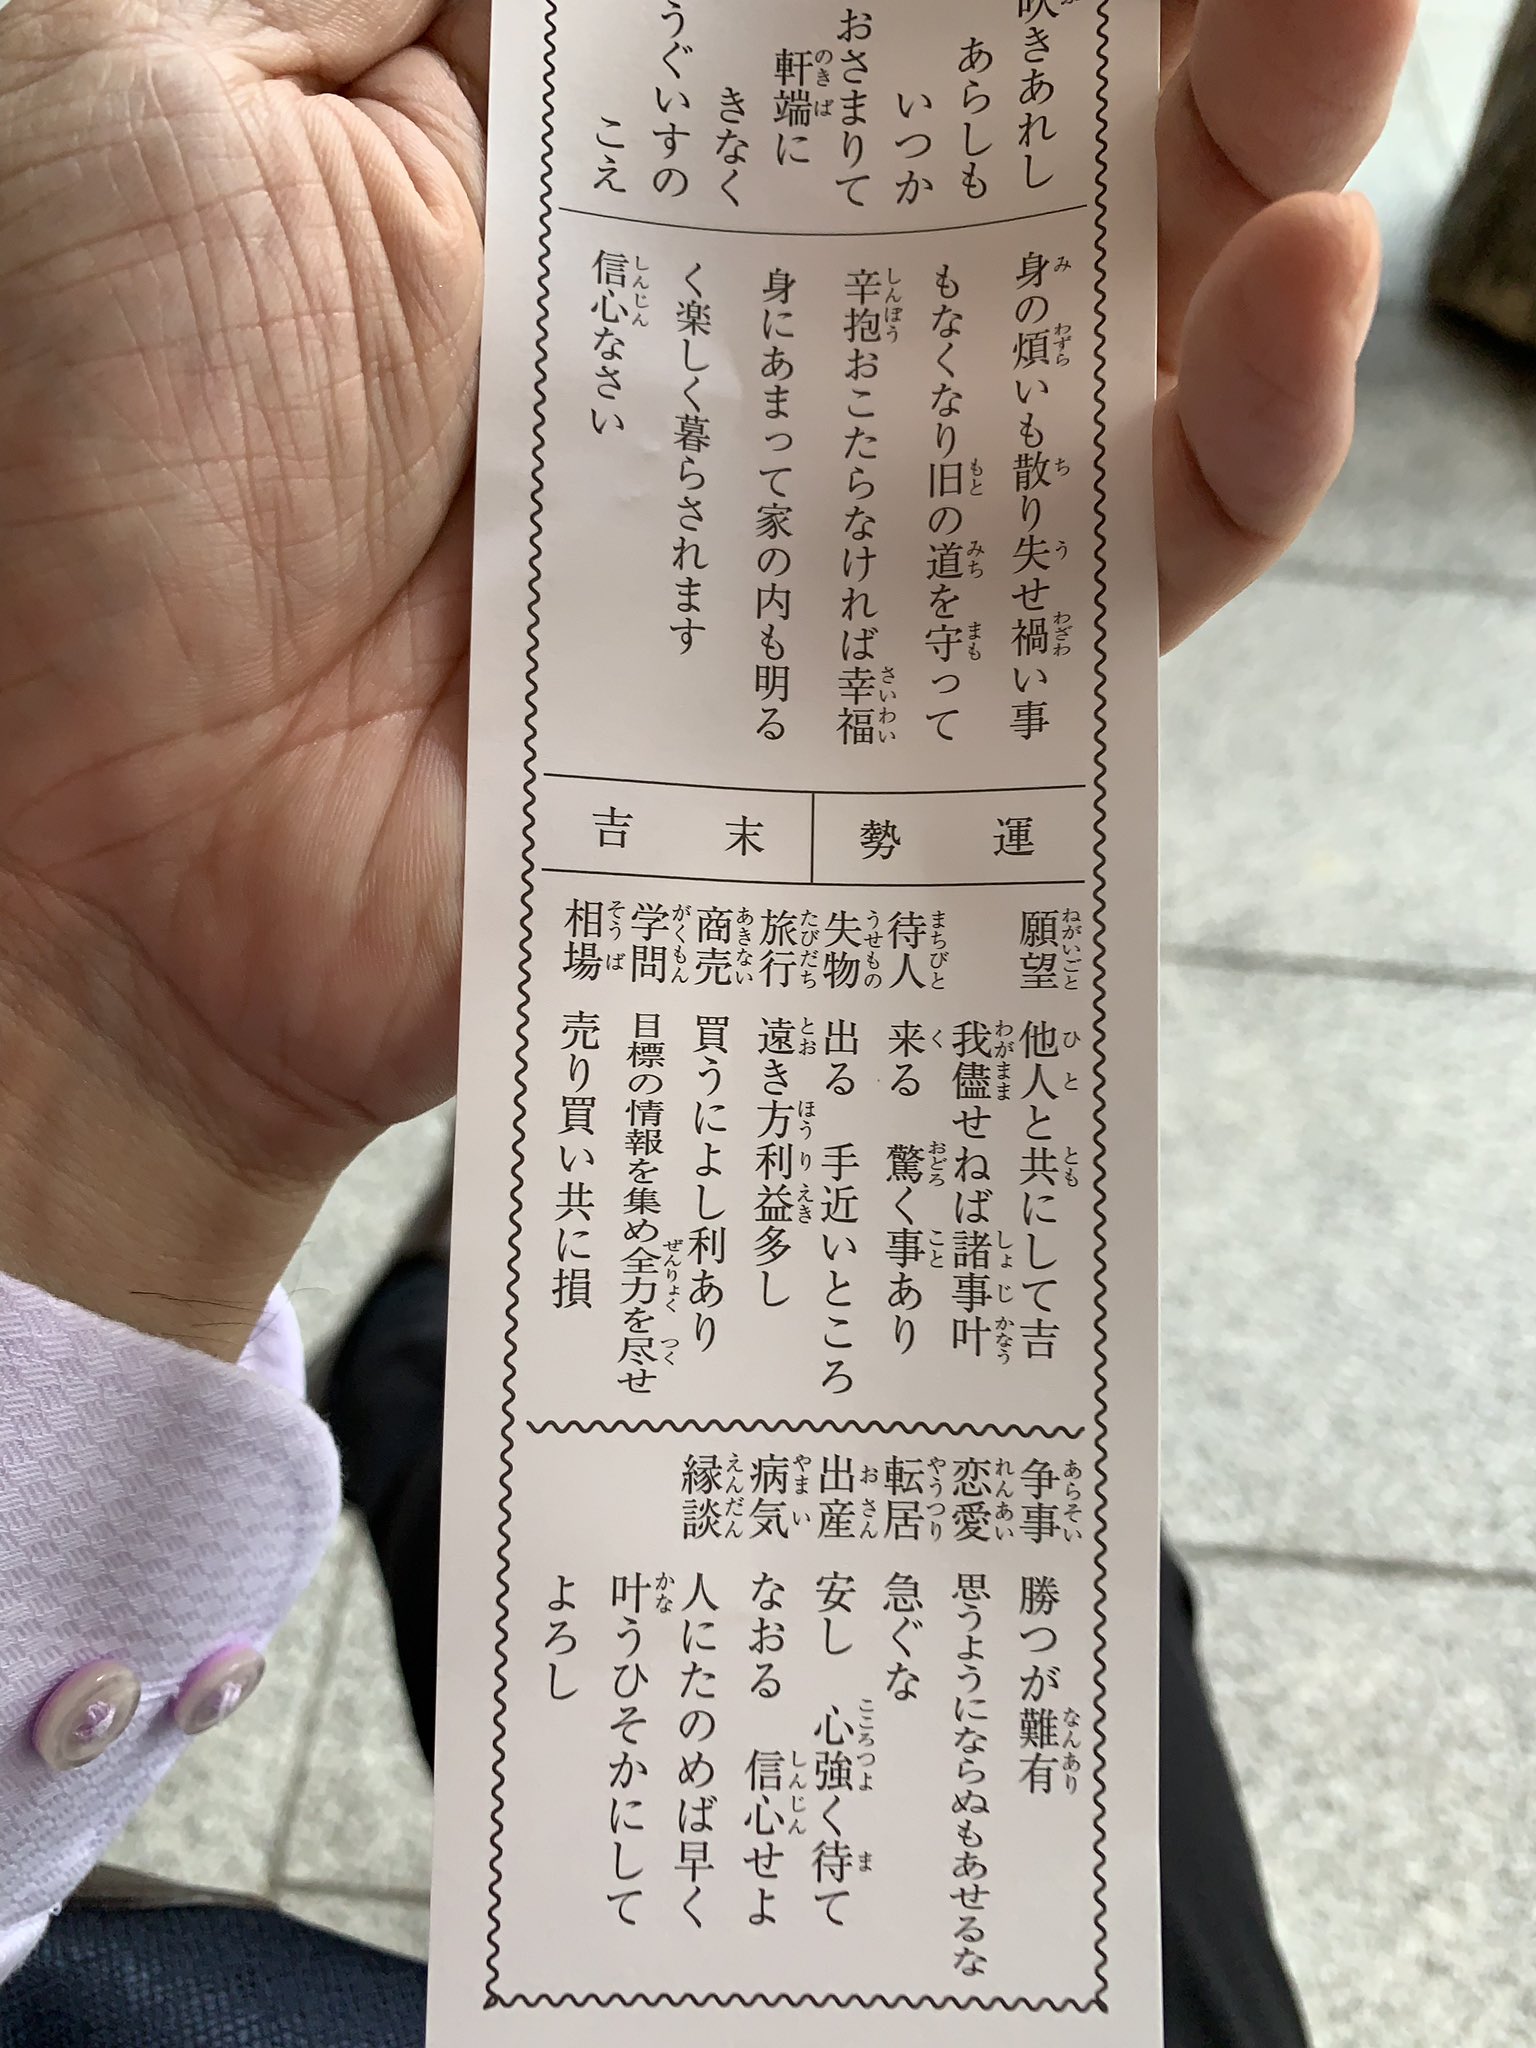 吹きあれし
あらしも
いつか
おさまりて
軒端に
きなく
うぐいすの
こえ
身の煩いも散り失せ禍い事
もなくなり旧の道を守って
辛抱おこたらなければ幸福
身にあまって家の内も明る
く楽しく暮らされます
信心なさい
運勢
末吉
願望 他人と共にして吉
我儘せねば諸事叶
待人 来る 驚く事あり
失物 出る 手近いところ
旅行 遠き方利益多し
商売 買うによし利あり
学問 目標の情報を集め全力を尽せ
相場 売り買い共に損
争事 勝つが難有
恋愛 思うようにならぬもあせるな
転居 急ぐな
出産 安し 心強く待て
病気 なおる 信心せよ
縁談 人にたのめば早く
叶うひそかにして
よろし